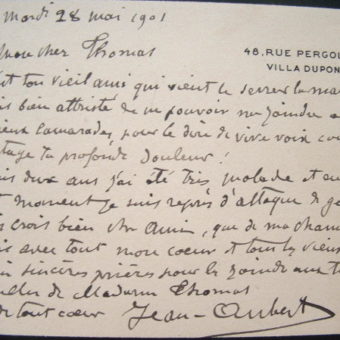 Mardi 28 mai 1901
48, RUE PERGOL
VILLA DUPON
mon cher Thomas
t ton vieil ami qui vient te serrer la ma
is bien attristé de ne pouvoir me joindre a
ieux camarades, pour te dire de vive voix co
tage ta profonde douleur!
is deux ans j'ai été très malade et en
t moment je suis repris d'attaque de go
is crois bien cher ami, que de ma cham
is avec tout mon coeur et tous les vieux
in sincères prières pour les joindre aux t
de Madame Thomas
de tout coeur Jean-Aubert